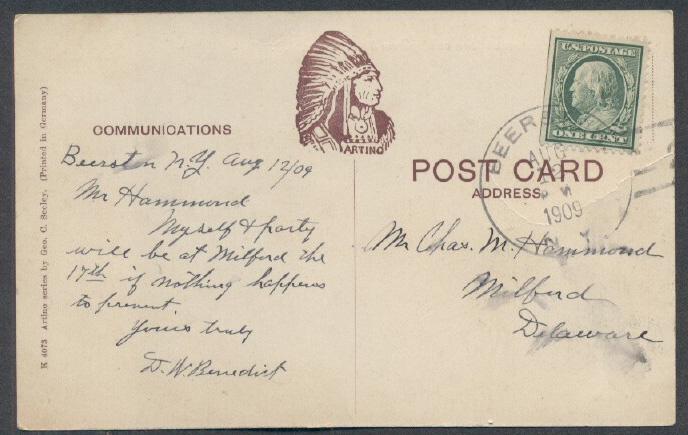 K 4073 Artino series by Geo. C. Seeley. (Printed in Germany)
COMMUNICATIONS
ARTINO
U.S. POSTAGE
ONE CENT
POST CARD
ADDRESS
BEERS
AUG
1909
Beerston N.Y. Aug 12/09
Mr Hammond
Myself & party
will be at Milford the
17th if nothing happens
to prevent.
Yours truly
D. W. Benedict
Mr Chas. M. Hammond
Milford
Delaware